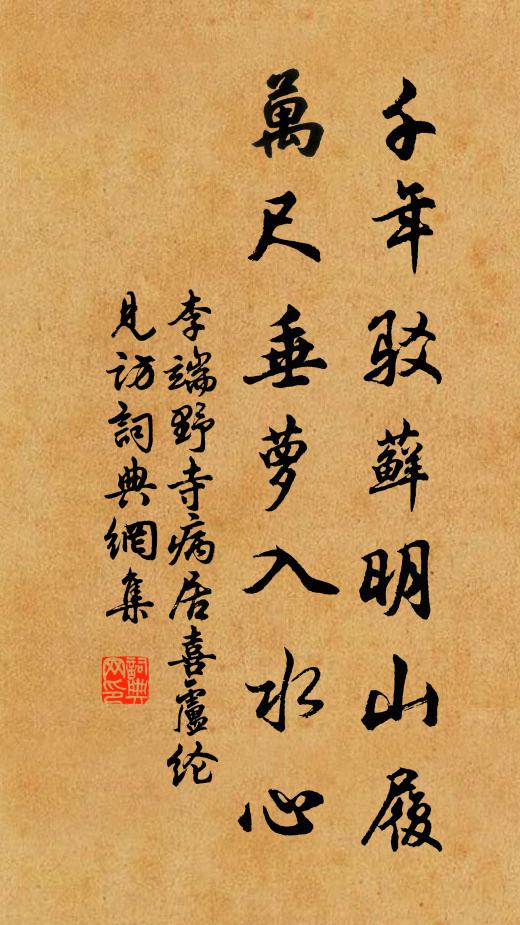 千年駁蘚明山履
萬尺垂萝入水心
李端野寺病居喜盧纶
見訪詞典網集
詞典网印